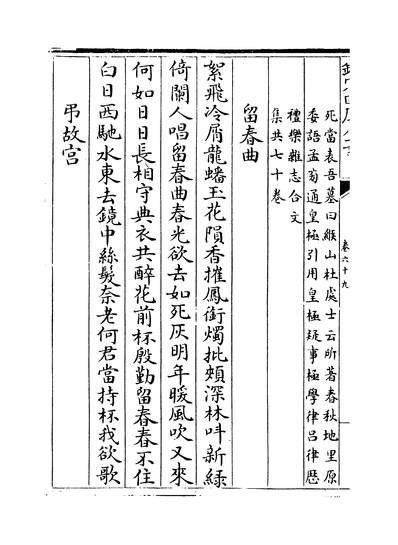 卷六十九
死當表吾墓曰緱山杜處士云所著春秋地里原
委語孟旨通皇極引用皇極疑事極學律呂律歷
禮樂雜志合文
集共七十卷
留春曲
絮飛冷屑龍蟠玉花隕香摧鳳銜燭批頰深林呌新綠
倚闌人唱留春曲春光欲去如死灰明年暖風吹又來
何如日日長相守典衣共醉花前杯殷勤留春春不住
白日西馳水東去鏡中絲髮奈老何君當持杯我欲歌
弔故宫